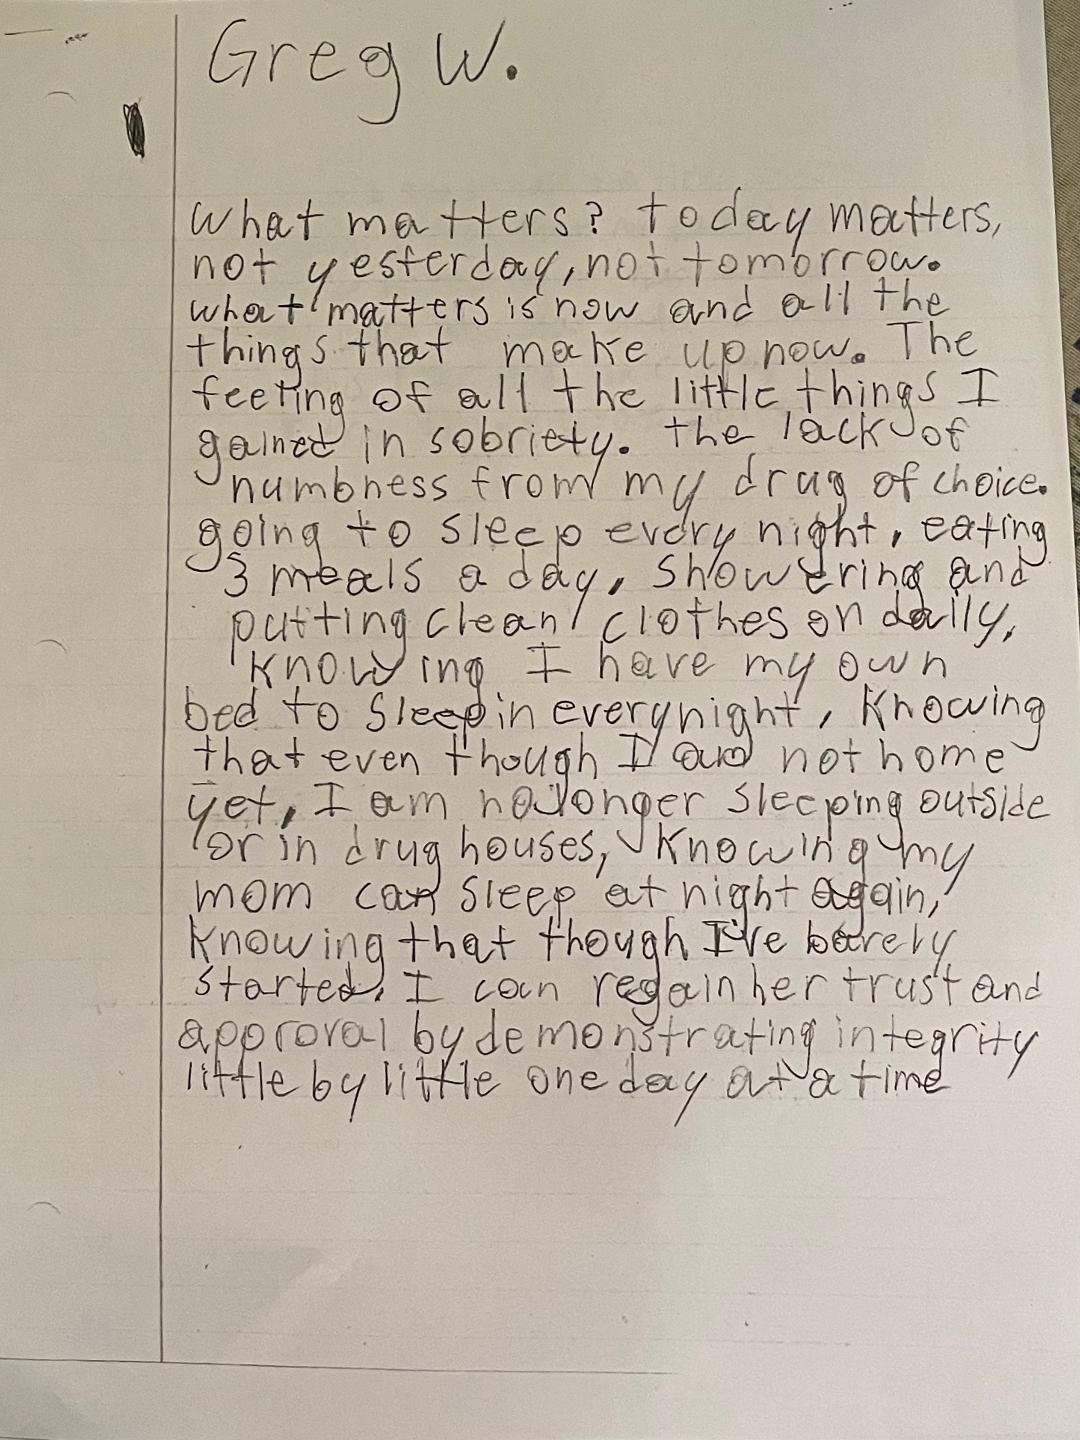 Greg W.
What matters? today matters,
not yesterday, not tomorrow.
what matters is now and all the
things that make up now. The
feeling of all the little things I
gained in sobriety. the lack of
numbness from my drug of choice.
going to sleep every night, eating
3 meals a day, showering and
putting clean clothes on daily,
knowing I have my own
bed to sleep in every night, knowing
that even though I am not home
yet, I am no longer sleeping outside
or in drug houses, knowing my
mom can sleep at night again,
knowing that though I've barely
started, I can regain her trust and
approval by demonstrating integrity
little by little one day at a time